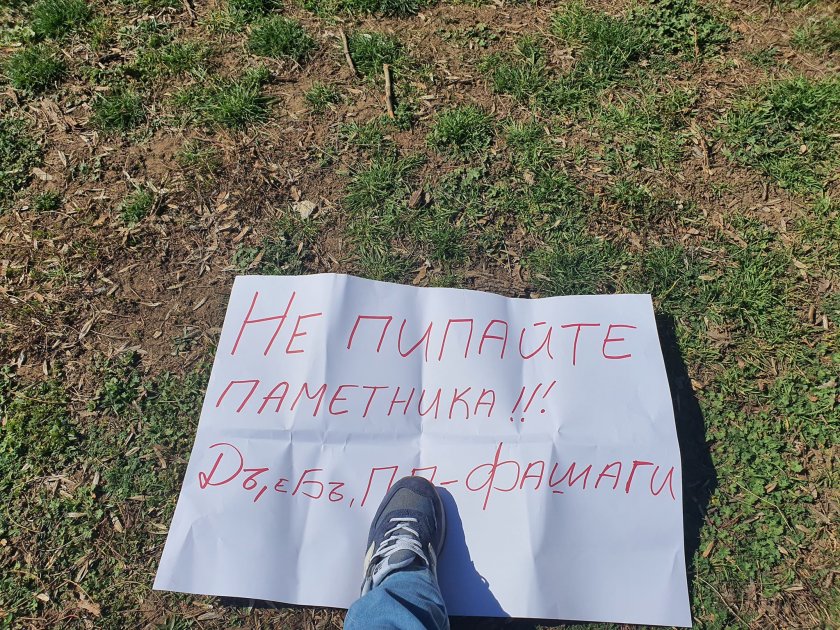 Не пипайте
паметника!!!
Дъ, еБъ, ПП-фашаги